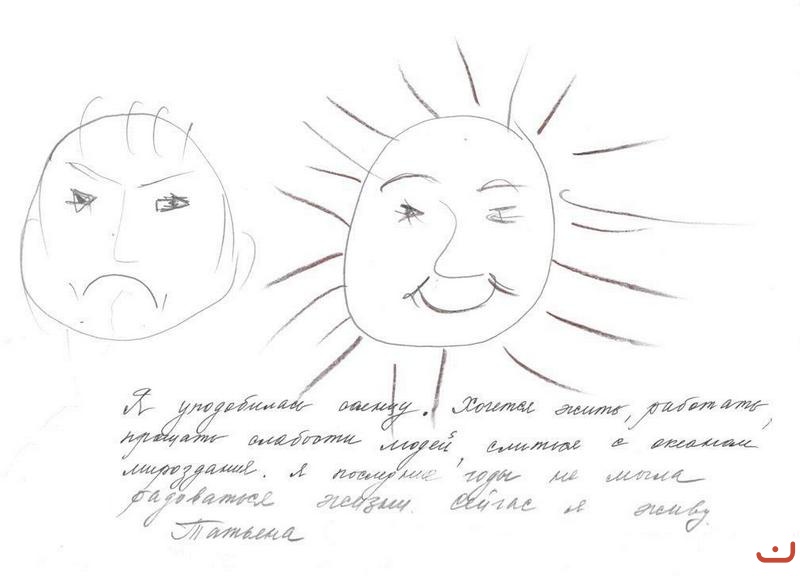 Я уподобилась солнцу. Хочется жить, работать,
прощать слабости людей, слиться с океаном
мироздания. Я последние годы не могла
радоваться жизни. Сейчас я живу.
Татьяна